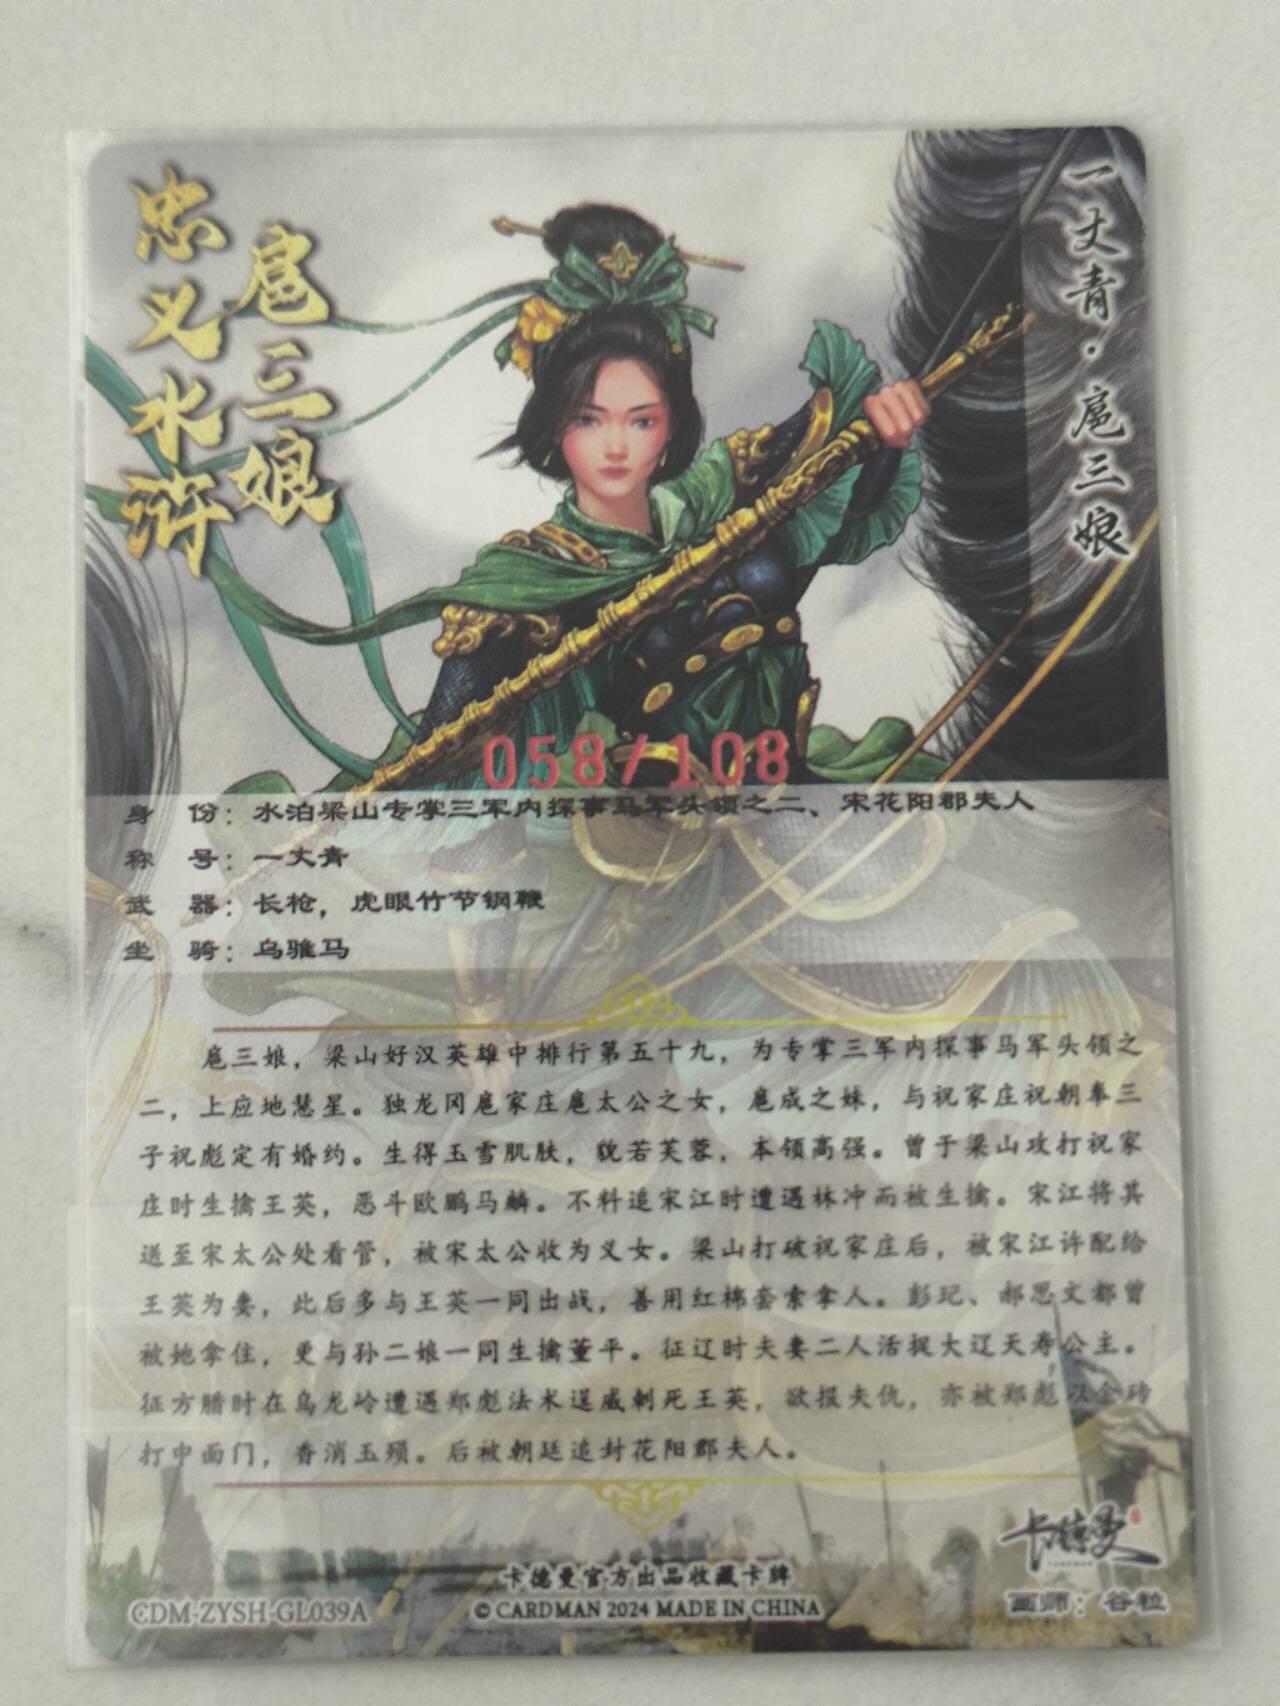 忠义水浒
扈三娘
一丈青·扈三娘
058/108
身 份：水泊梁山专掌三军内探事马军头领之二、宋花阳郡夫人
称 号：一丈青
武 器：长枪，虎眼竹节钢鞭
坐 骑：乌骓马
扈三娘，梁山好汉英雄中排行第五十九，为专掌三军内探事马军头领之
二，上应地慧星。独龙冈扈家庄扈太公之女，扈成之妹，与祝家庄祝朝奉三
子祝彪定有婚约。生得玉雪肌肤，貌若芙蓉，本领高强。曾于梁山攻打祝家
庄时生擒王英，恶斗欧鹏马麟。不料追宋江时遭遇林冲而被生擒。宋江将其
送至宋太公处看管，被宋太公收为义女。梁山打破祝家庄后，被宋江许配给
王英为妻，此后多与王英一同出战，善用红棉套索拿人。彭玘、郝思文都曾
被她拿住，更与孙二娘一同生擒董平。征辽时夫妻二人活捉大辽天寿公主。
征方腊时在乌龙岭遭遇郑彪法术逞威刺死王英，欲报夫仇，亦被郑彪以金砖
打中面门，香消玉殒。后被朝廷追封花阳郡夫人。
卡德曼
卡德曼官方出品收藏卡牌
CDM-ZYSH-GL039A
© CARDMAN 2024 MADE IN CHINA
画师：谷粒